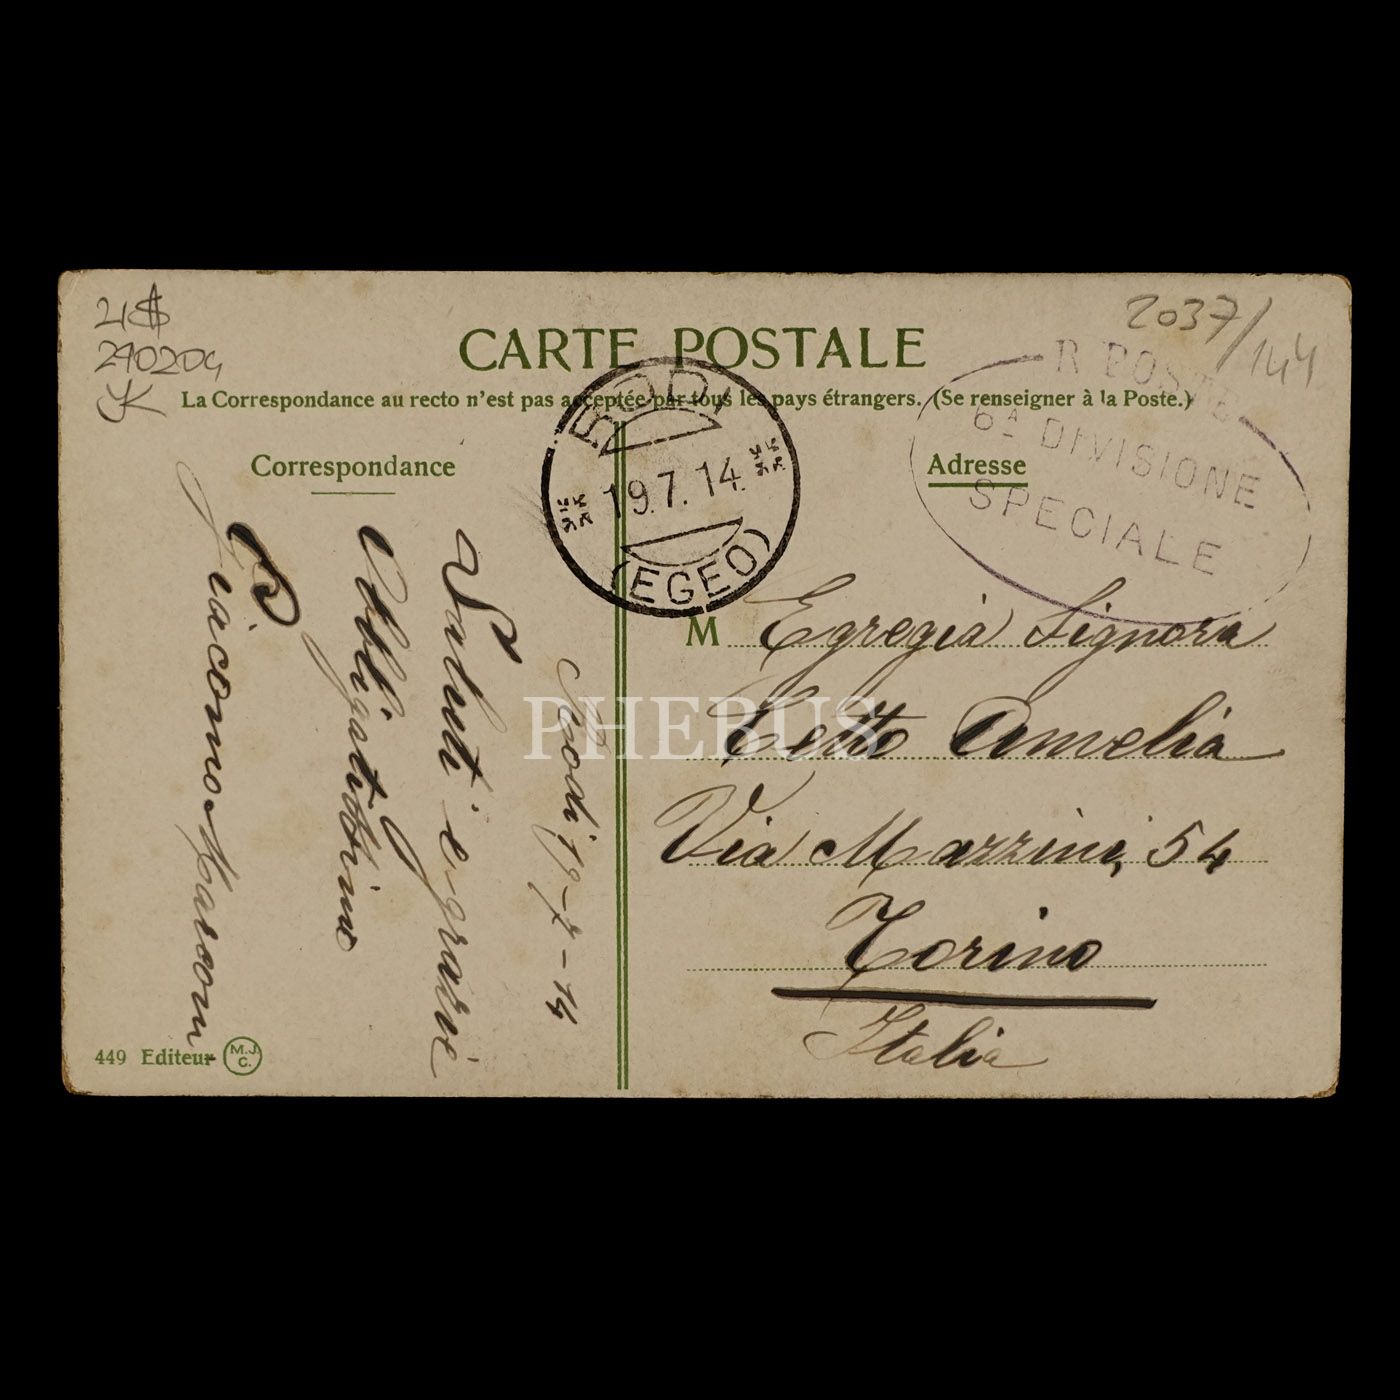 2037/144
270204
CARTE POSTALE
La Correspondance au recto n'est pas acceptée par tous les pays étrangers. (Se renseigner à la Poste.)
Correspondance
Adresse
RODI
19.7.14
(EGEO)
R POSTE
6A DIVISIONE
SPECIALE
Rodi 19-7-14
Saluti e grazie
Obbligatissimo
Giacomo Marconi
M Egregia Signora
Cetto Amelia
Via Mazzini, 54
Torino
Italia
449 Editeur M.J.C.
PHEBUS